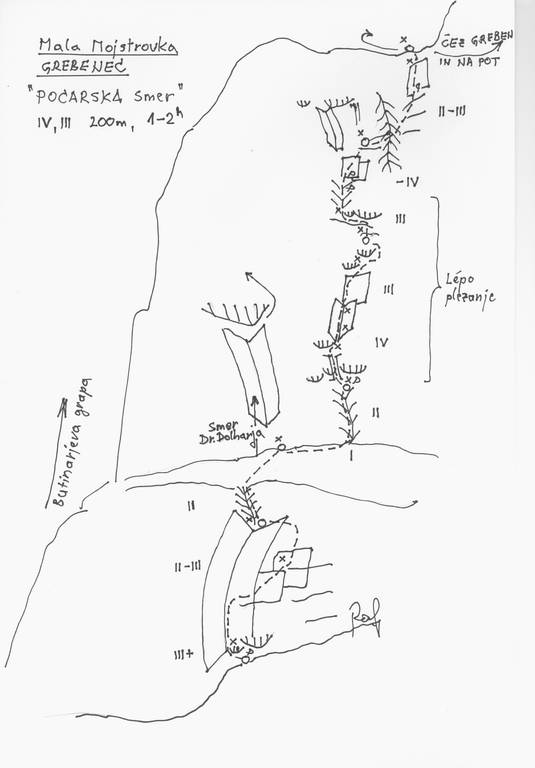 Mala Mojstrovka
GREBENEC
"POČARSKA smer"
IV, III 200m, 1-2h
ČEZ GREBEN
IN NA POT
II-III
-IV
III
III
Lépo
plezanje
IV
II
Smer
Dr. Dolharja
I
Butinarjeva grapa
II
II-III
III+